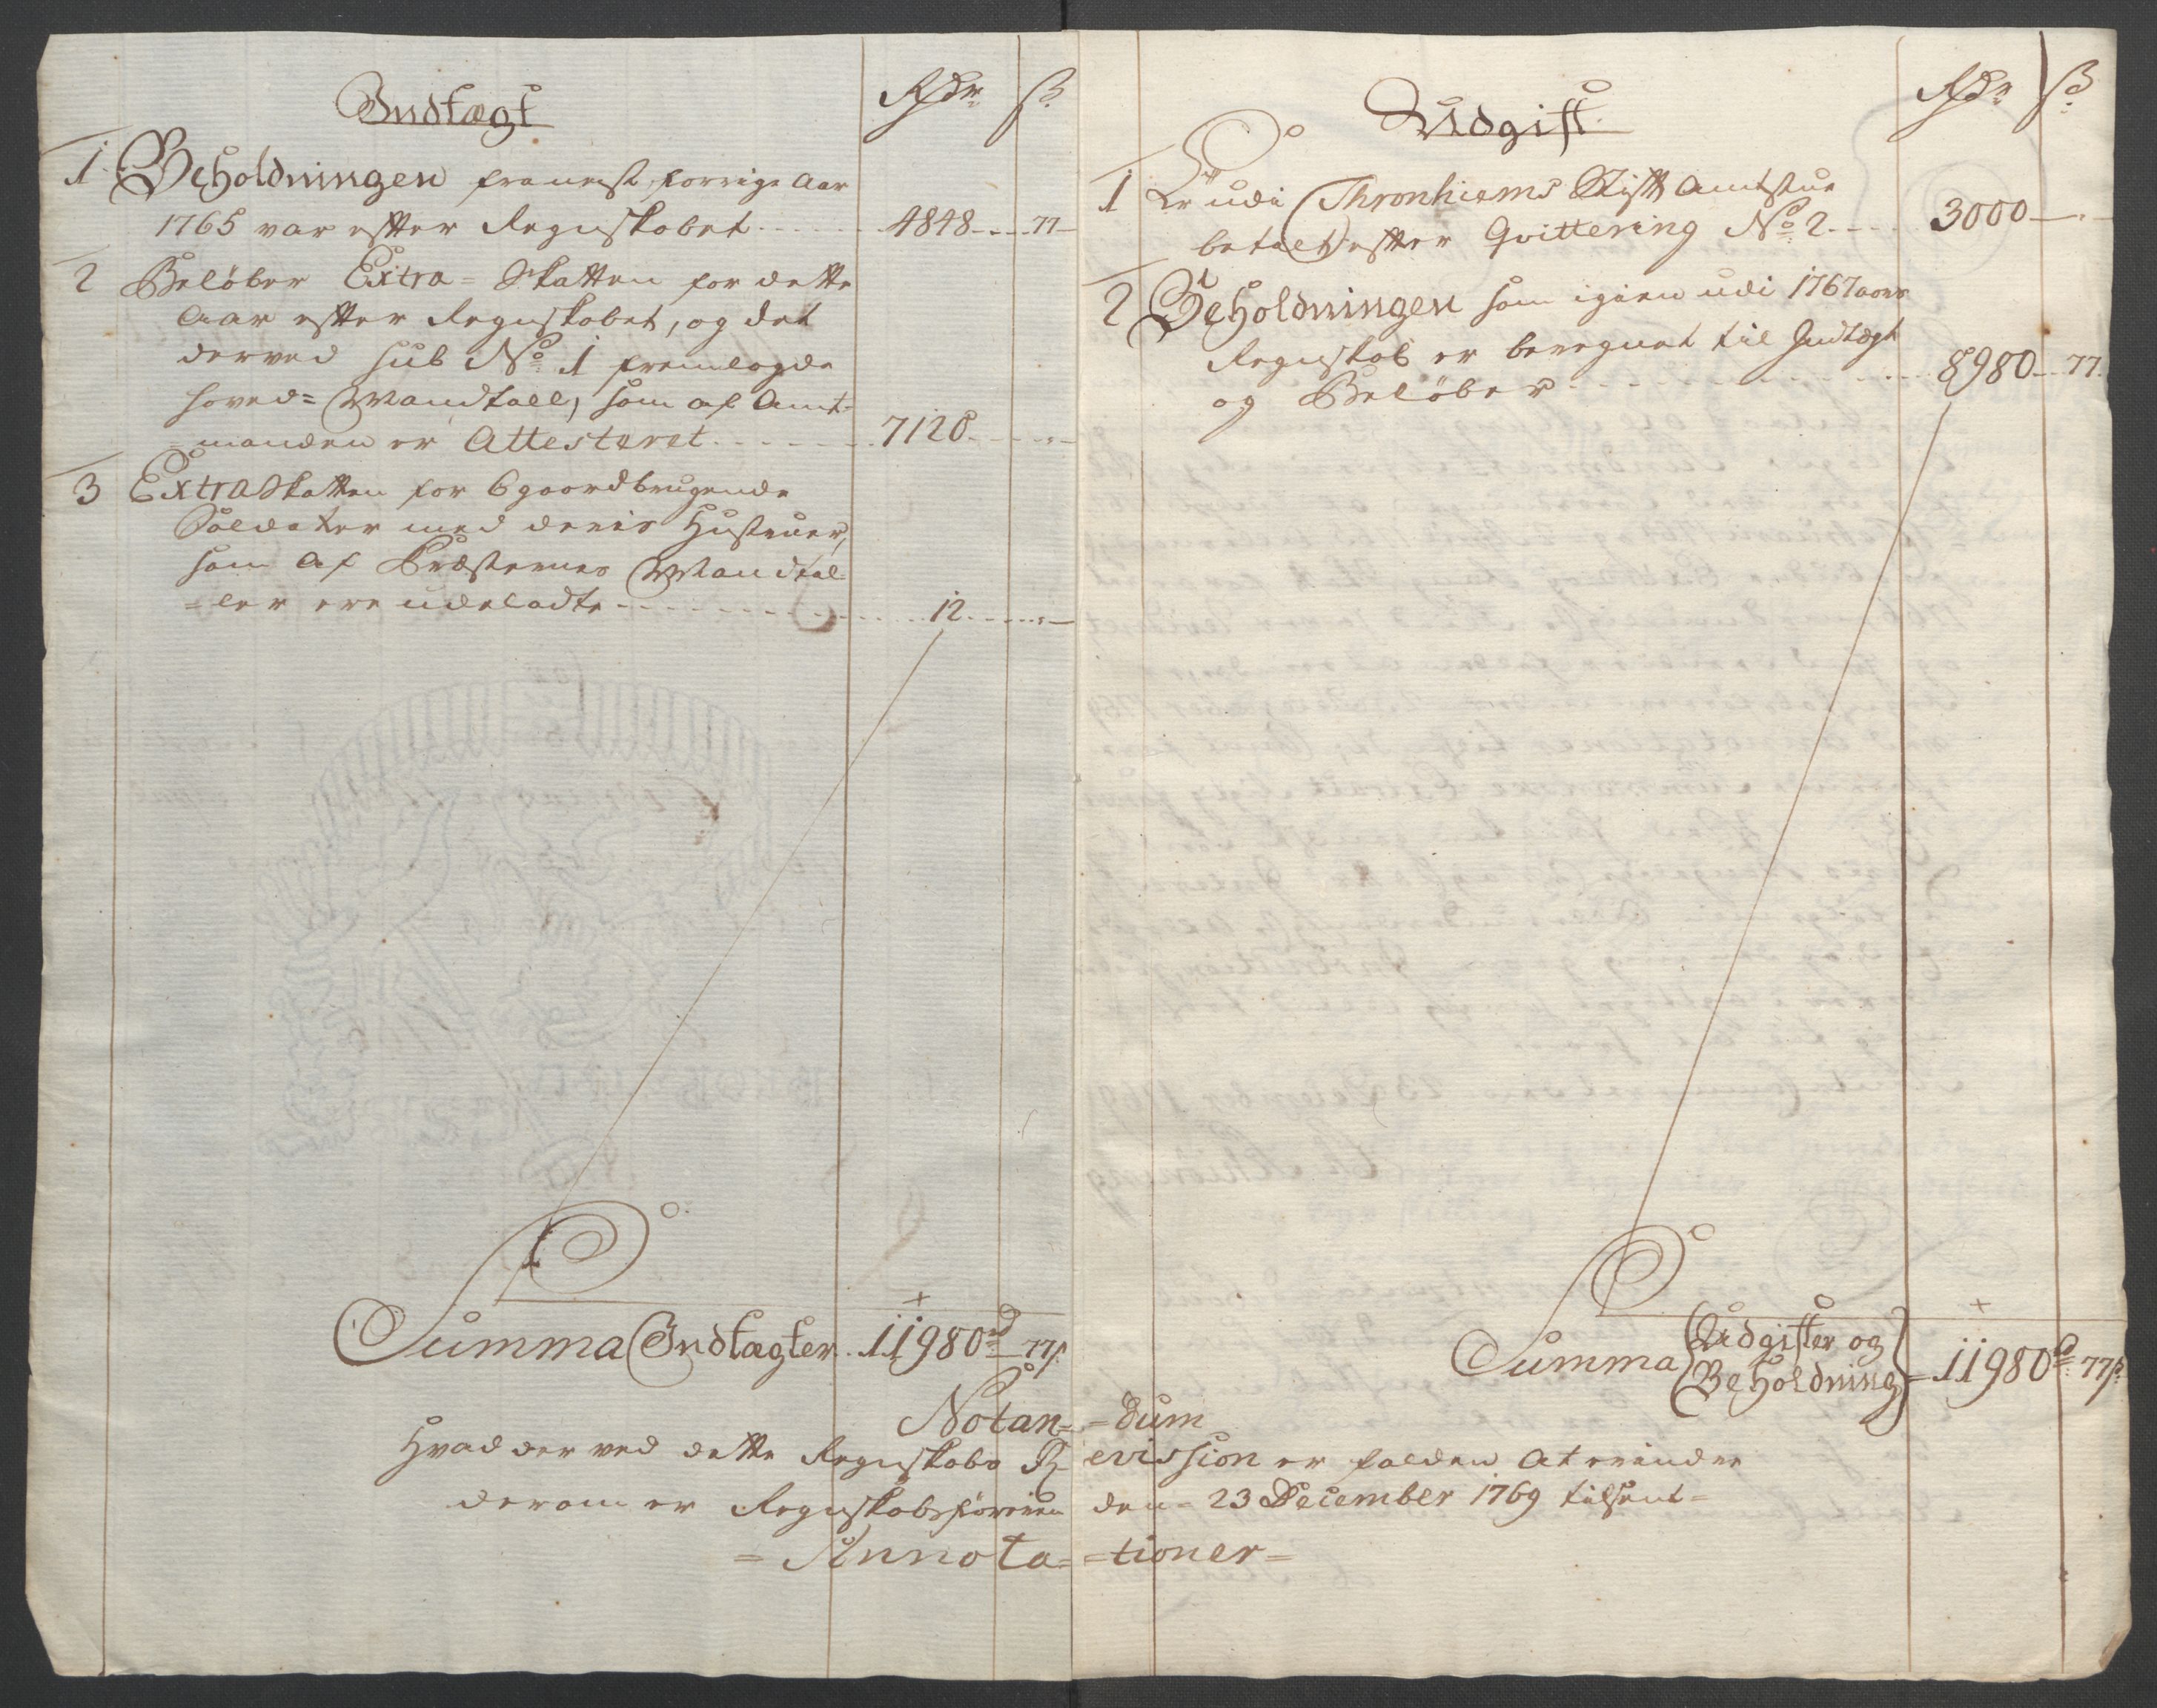 Indtægt
Rdr ß
1 Beholdningen framust forrige Aar
1765 var efter Regnskabet 4848 77
2 Beløber Extra=Skatten for dette
Aar efter Regnskabet, og det
derved sub No 1 fremlagde
hoved=Mandtall, som af Amt=
=manden er Attesteret 7120
3 Extraskatten for 6 gaardbrugende
Soldater med deris Hustruer,
som af Præsternes Mandtal=
=ler ere udeladte 12
Summa Indtægter 11980rd 77ß
Udgift
Rdr ß
1 Er udi Thronhiems Stifts Amtstue
betalt efter Qvittering No 2 3000
2 Beholdningen som igien udi 1767 aars
Regnskab er beregnet til Indtægt
og Beløber 8980 77
Summa Udgifter og Beholdning 11980rd 77ß
Notan= =dum
Hvad der ved dette Regnskabs Revission er falden at erindre
derom er Regnskabsføreren den 23 December 1769 tilsent=
=Annota= =tioner=